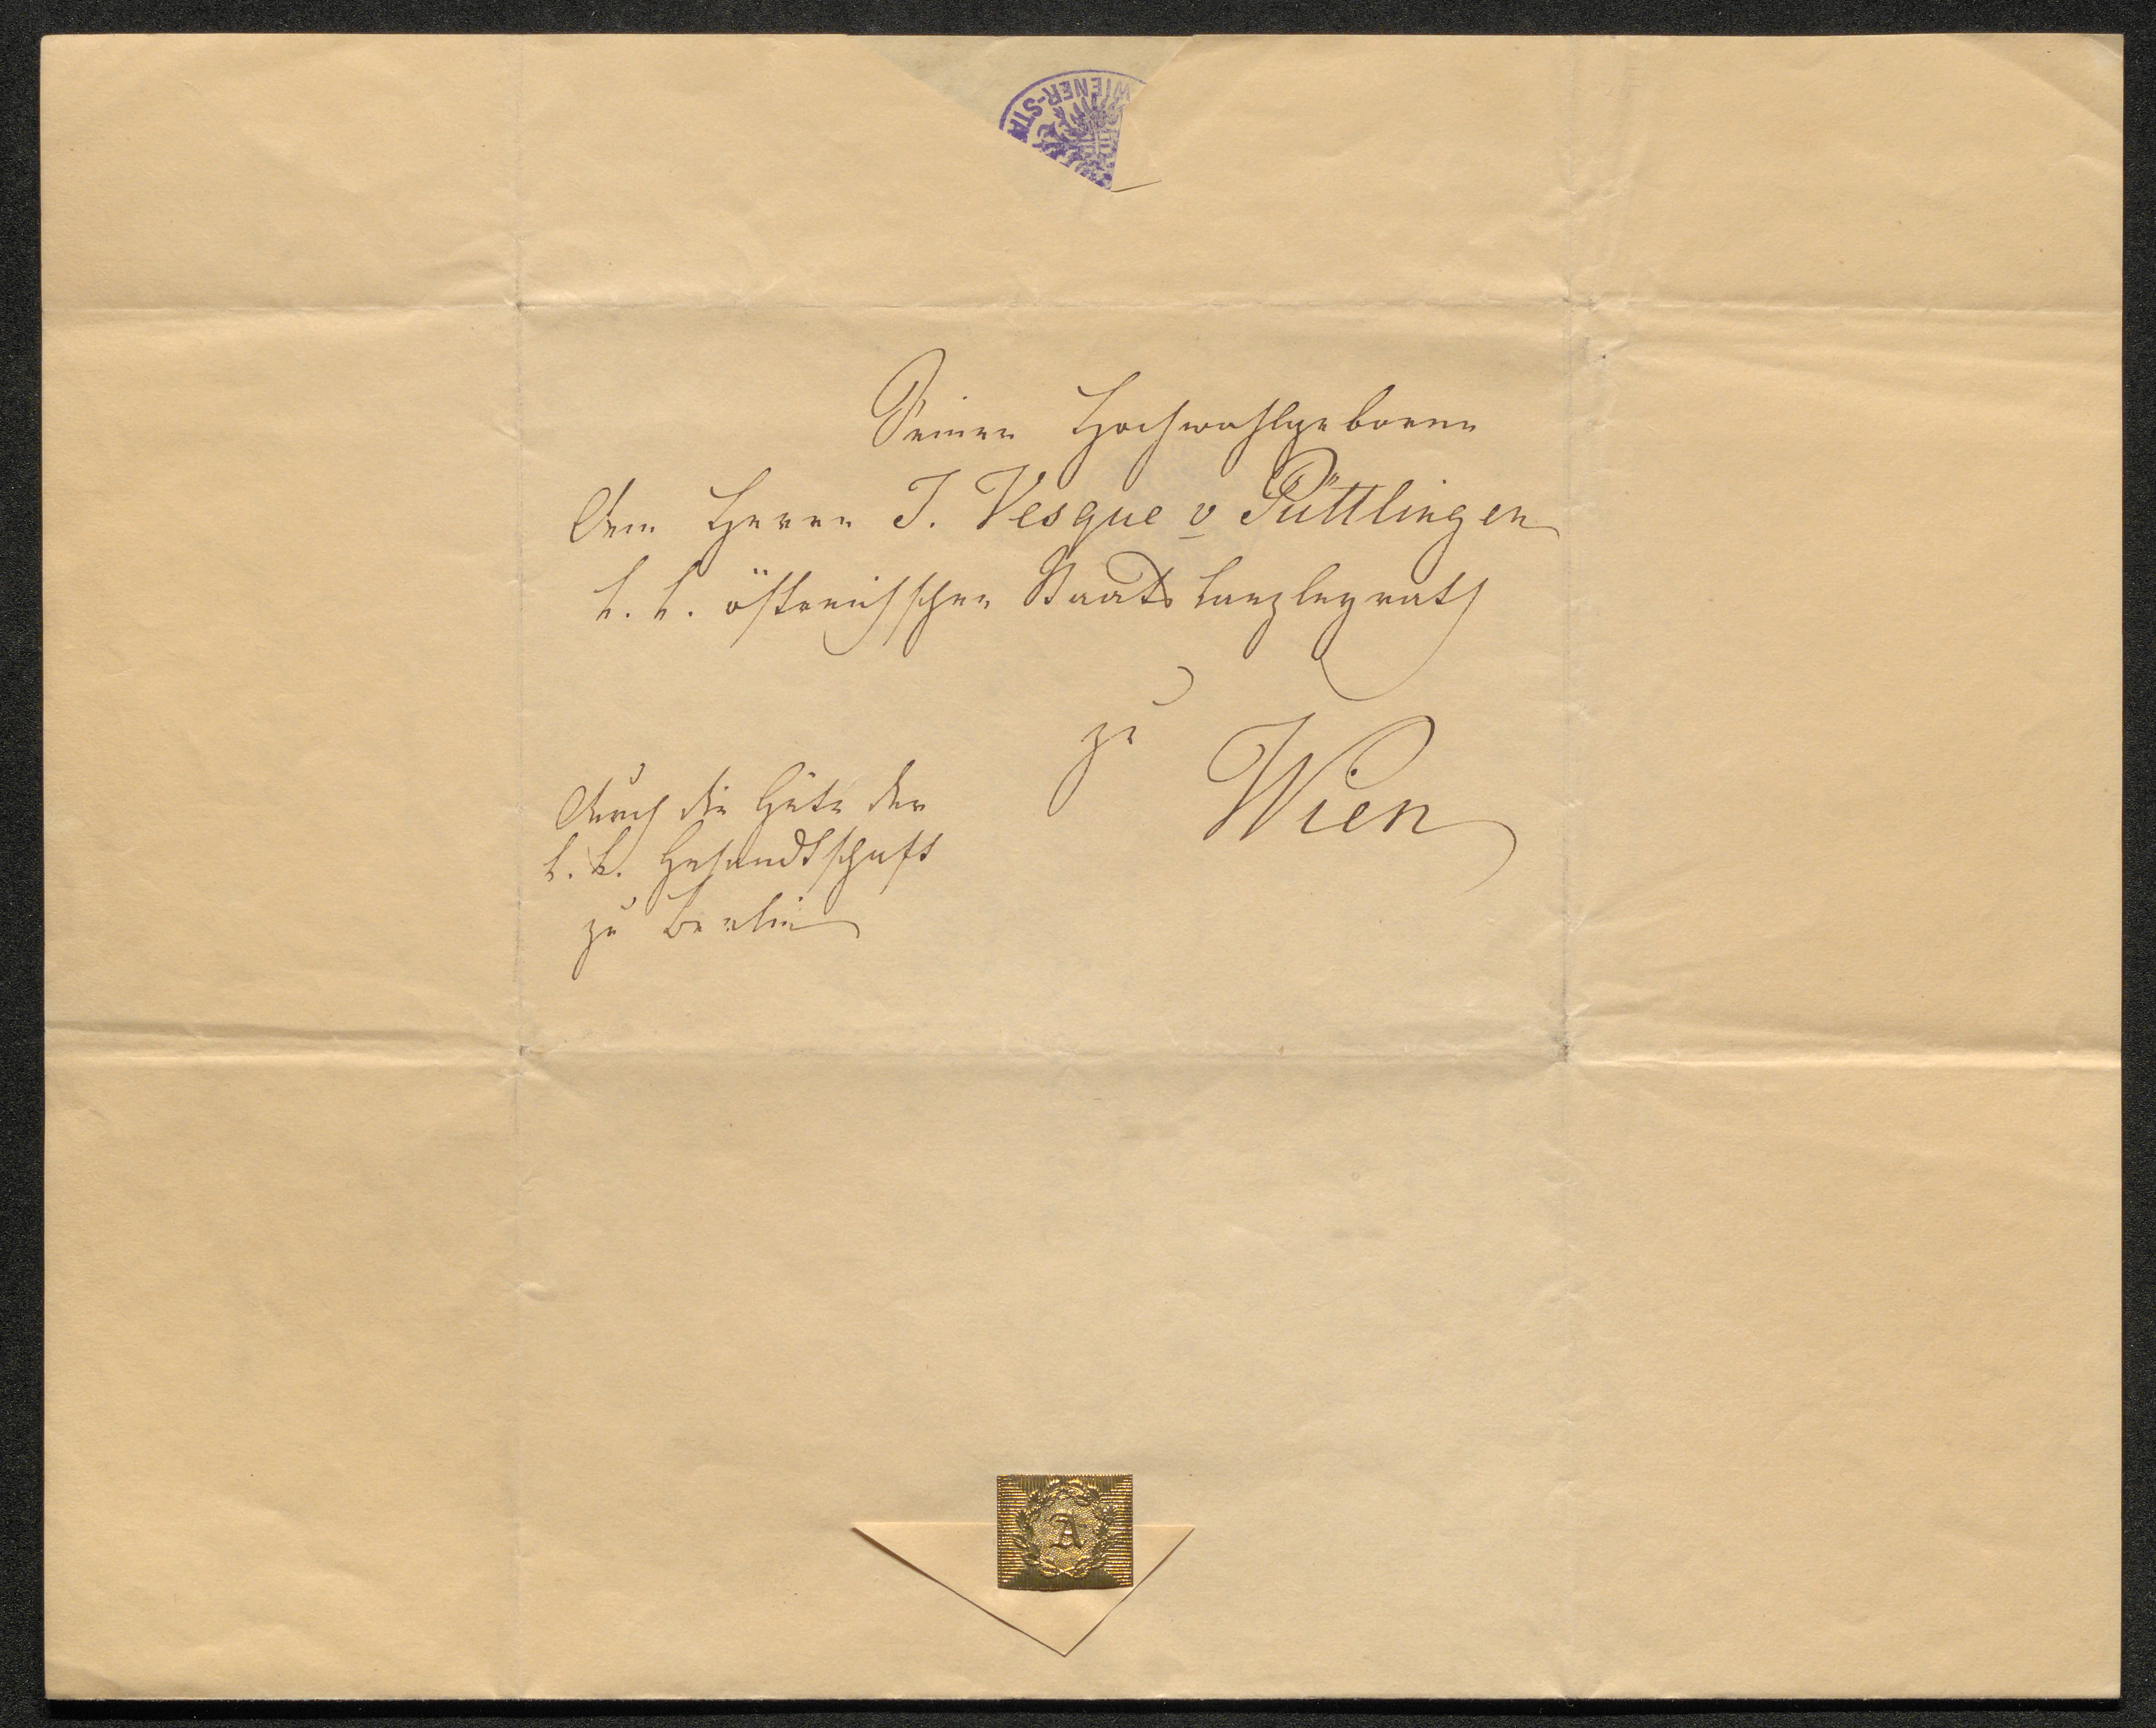 WIENER-STA
Seiner Hochwohlgeboren
dem Herrn J. Vesque v Püttlingen
k. k. östreichscher Staatskanzleyrath
zu
Wien
durch die Güte der
k. k. Gesandtschaft
zu Berlin
A